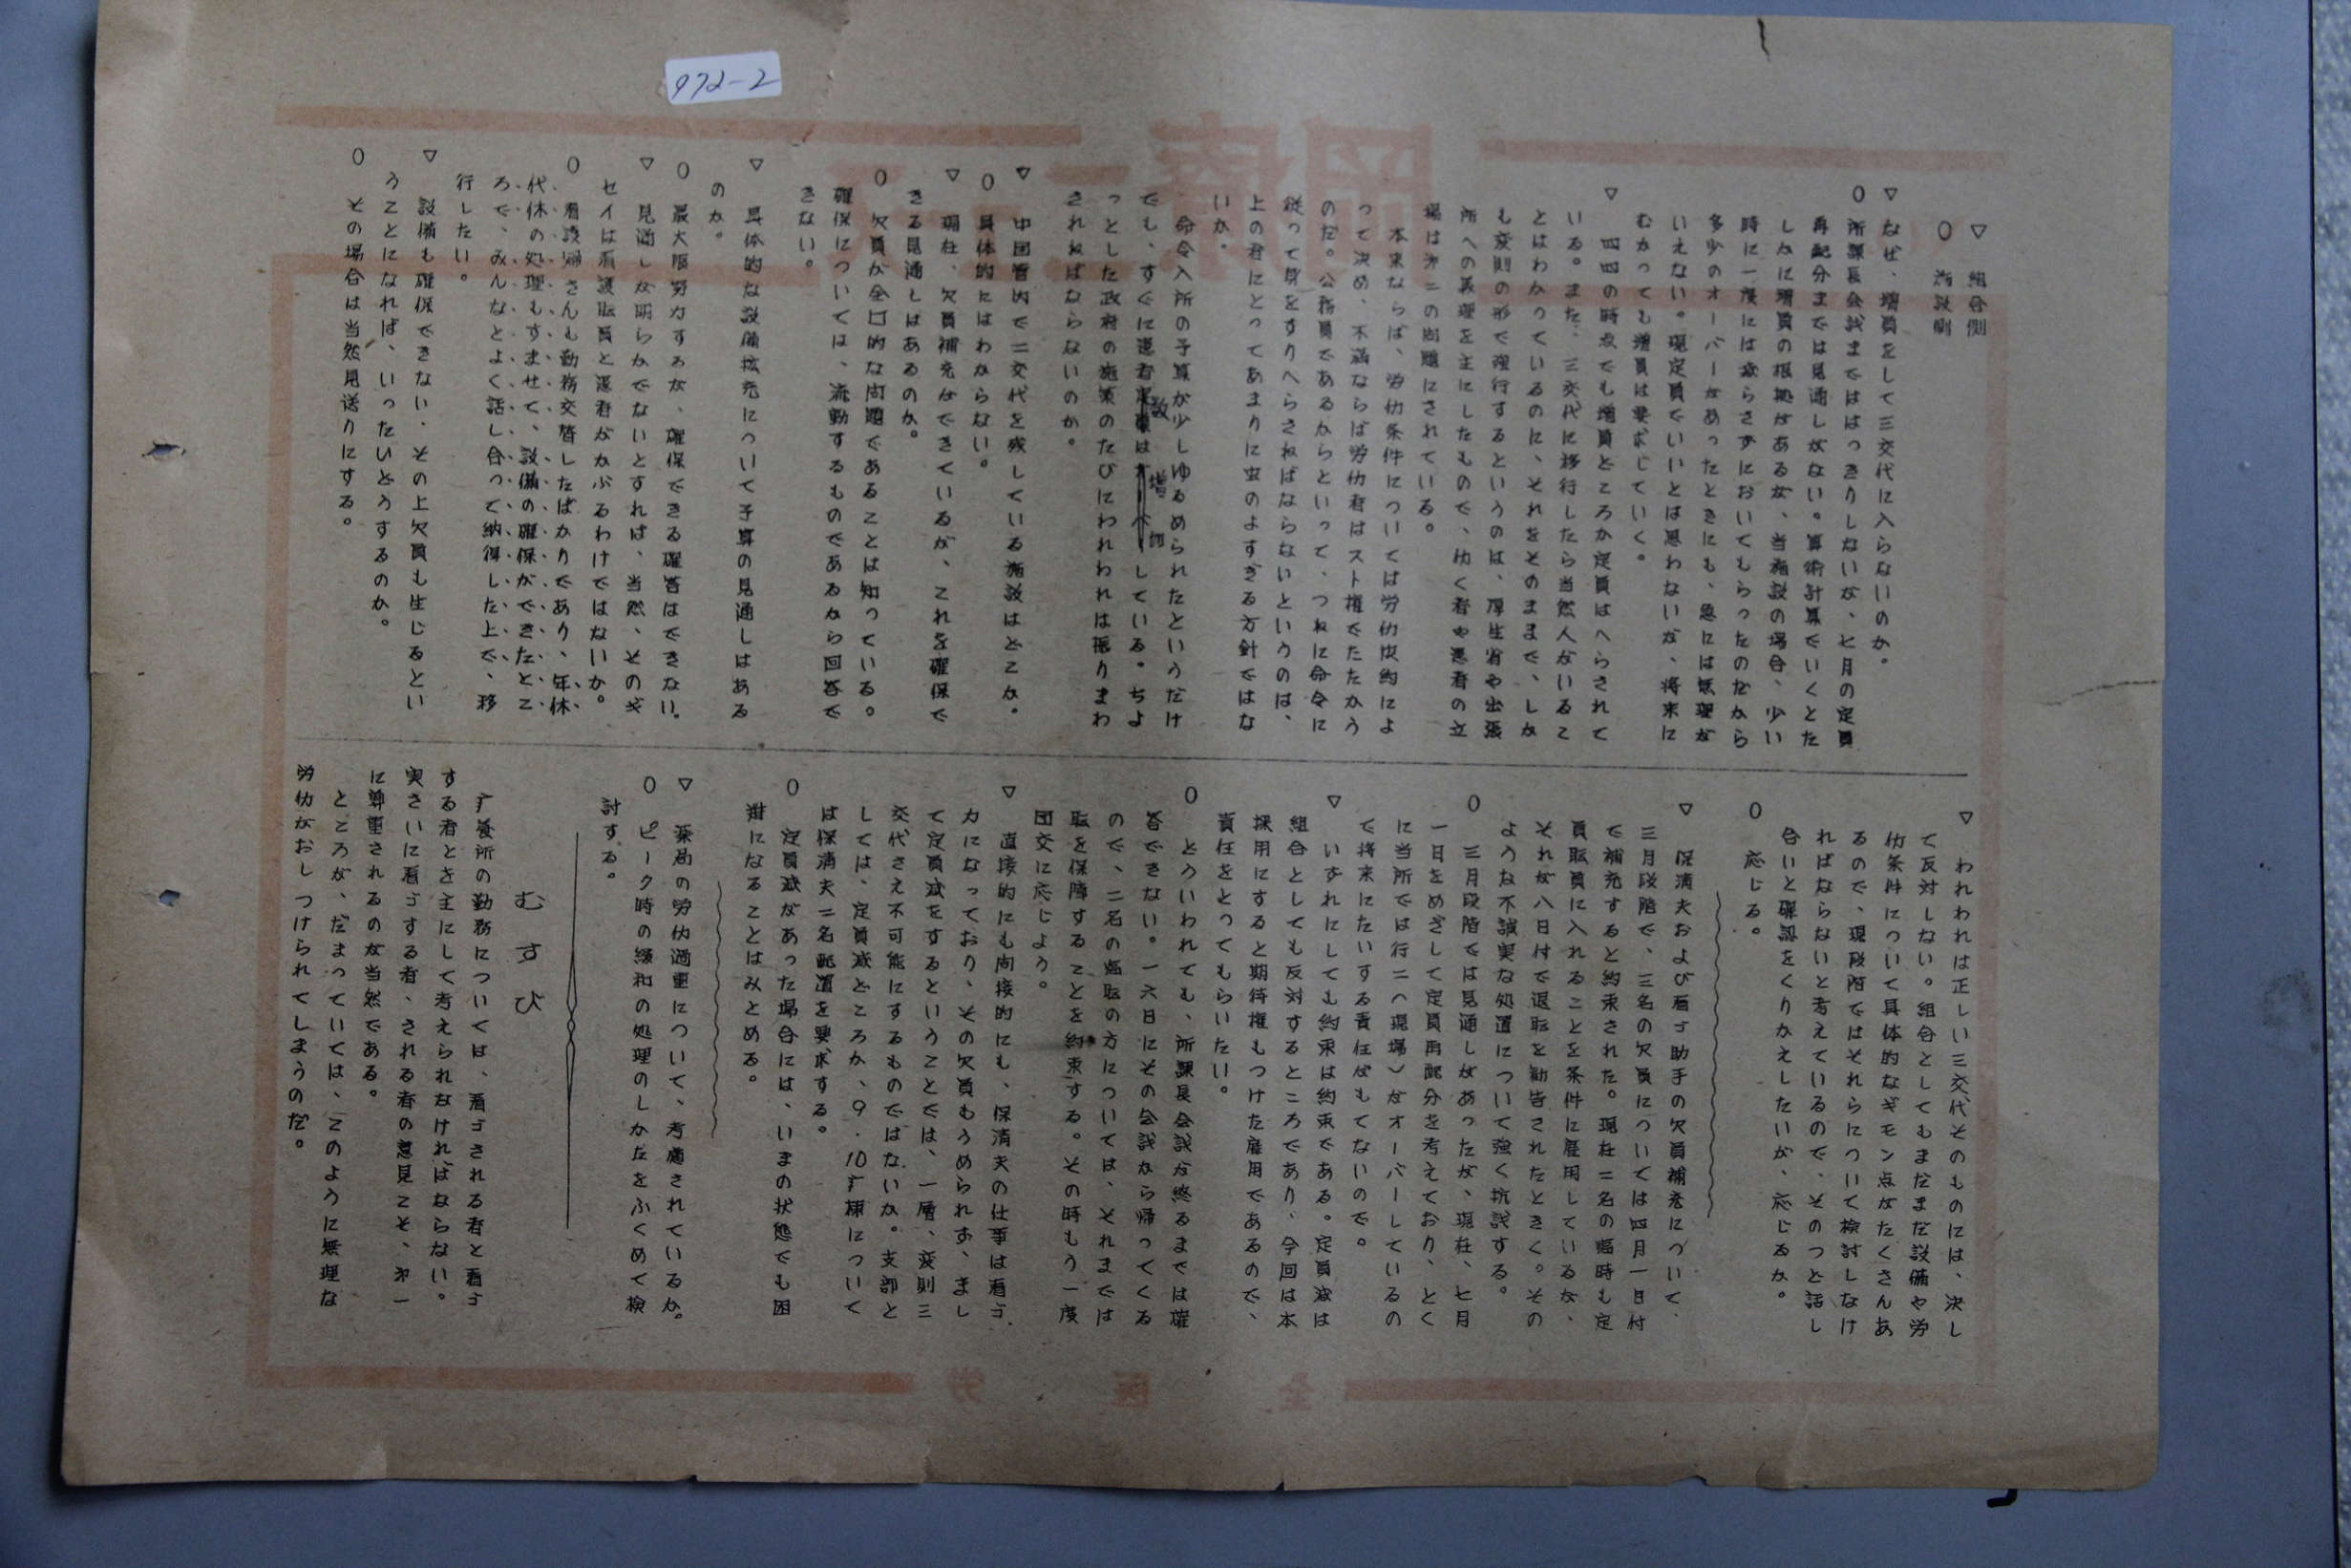 972-2
▽ 組合側
〇 施設側
▽ なぜ、増員をして三交代に入らないのか。
〇 所課長会議までははっきりしないが、七月の定員
再配分までは見通しがない。算術計算でいくとた
しかに増員の根拠があるが、当施設の場合、少い
時に一度には減らさずにおいてもらったのだから
多少のオーバーがあったときにも、急には無理が
いえない。現定員でいいとは思わないが、将来に
むかっても増員は要求していく。
▽ 四四の時点でも増員どころか定員はへらされて
いる。また、三交代に移行したら当然人がいるこ
とはわかっているのに、それをそのままで、しか
も変則の形で強行するというのは、厚生省や出張
所への義理を主にしたもので、仂く者や患者の立
場は第二の問題にされている。
本来ならば、労仂条件については労仂協約によ
って決め、不満ならば労仂者はスト権でたたかう
のだ。公務員であるからといって、つねに命令に
従って身をすりへらさねばならないというのは、
上の者にとってあまりに虫のよすぎる方針ではな
いか。
命令入所の予算が少しゆるめられたというだけ
でも、すぐに患者数は増加している。ちよ
っとした政府の施策のたびにわれわれは振りまわ
されねばならないのか。
▽ 中国管内で二交代を残している施設はどこか。
〇 具体的にはわからない。
▽ 現在、欠員補充ができているが、これを確保で
きる見通しはあるのか。
〇 欠員が全国的な問題であることは知っている。
確保については、流動するものであるから回答で
きない。
▽ 具体的な設備拡充について予算の見通しはある
のか。
〇 最大限努力するが、確保できる確答はできない。
▽ 見通しが明らかでないとすれば、当然、そのギ
セイは看護職員と患者がかぶるわけではないか。
〇 看護婦さんも勤務交替したばかりであり、年休
代休の処理もすませて、設備の確保ができたとこ
ろで、みんなとよく話し合って納得した上で、移
行したい。
▽ 設備も確保できない、その上欠員も生じるとい
うことになれば、いったいどうするのか。
〇 その場合は当然見送りにする。
▽ われわれは正しい三交代そのものには、決し
て反対しない。組合としてもまだまだ設備や労
仂条件について具体的なギモン点がたくさんあ
るので、現段階ではそれらについて検討しなけ
ればならないと考えているので、そのつど話し
合いと確認をくりかえしたいが、応じるか。
〇 応じる。
▽ 保清夫および看ゴ助手の欠員補充について、
三月段階で、三名の欠員については四月一日付
で補充すると約束された。現在二名の臨時も定
員職員に入れることを条件に雇用しているが、
それが八日付で退職を勧告されたときく。その
ような不誠実な処置について強く抗議する。
〇 三月段階では見通しがあったが、現在、七月
一日をめざして定員再配分を考えており、とく
に当所では行二(現場)がオーバーしているの
で将来にたいする責任がもてないので。
▽ いずれにしても約束は約束である。定員減は
組合としても反対するところであり、今回は本
採用にすると期待権もつけた雇用であるので、
責任をとってもらいたい。
〇 どういわれても、所課長会議が終るまでは確
答できない。一六日にその会議から帰ってくる
ので、二名の臨職の方については、それまでは
職を保障することを約束する。その時もう一度
団交に応じよう。
▽ 直接的にも間接的にも、保清夫の仕事は看ゴ
力になっており、その欠員もうめられず、まし
て定員減をするということでは、一層、変則三
交代さえ不可能にするものではないか。支部と
しては、定員減どころか、9.10疒棟について
は保清夫二名配置を要求する。
〇 定員減があった場合には、いまの状態でも困
難になることはみとめる。
▽ 薬局の労仂過重について、考慮されているか。
〇 ピーク時の緩和の処理のしかたをふくめて検
討する。
むすび
疒養所の勤務については、看ゴされる者と看ゴ
する者とを主にして考えられなければならない。
実さいに看ゴする者、される者の意見こそ、第一
に尊重されるのが当然である。
ところが、だまっていては、このように無理な
労仂がおしつけられてしまうのだ。
全医労